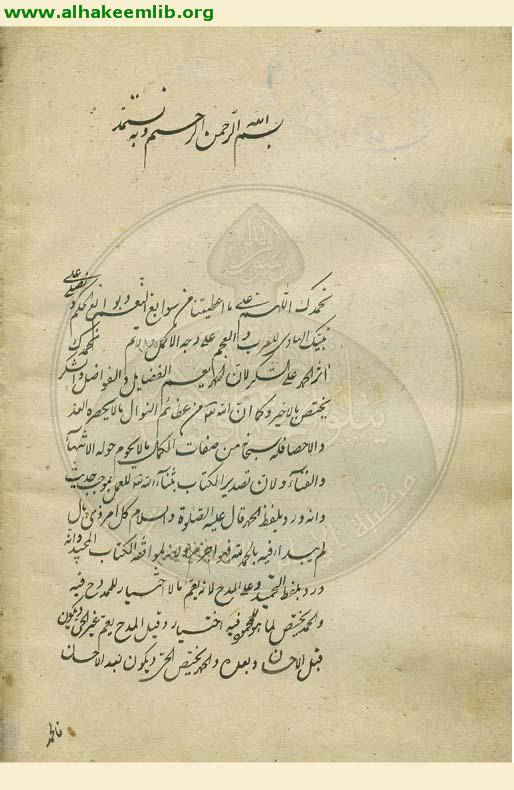 www.alhakeemlib.org
بسم الله الرحمن الرحيم وبه نستمد
نحمدك اللهم على ما اعطيتنا من سوابغ النعم وبوالغ الحكم ونصلى على
نبيك الهادى للعرب والعجم على وجه الاكمل الاتم
اثر الحمد على الشكر لان الحمد يعم الفضايل والفواضل والشكر
يختص بالاخير وكما ان الله من عظائم النوال ما لا يحصره العد
والاحصا فله سبحانه من صفات الكمال ما لا يحوم حوله الانتهاء
والفناء ولان تصدير الكتاب بثناء الله للعمل بموجب حديث
وانه ورد بلفظ الحمد قال عليه الصلوة والسلام كل امر ذى بال
لم يبدا فيه بالحمد لله فهو اجزم ولانه لموافقة الكتاب المجيد وانه
ورد بلفظ التحميد وعلى المدح لانه يعم ما لا اختيار للممدوح فيه
والحمد يختص لما هو للمحمود فيه اختيار وقيل المدح يعم غير الحى ويكون
قبل الاحسان وبعده والحمد يختص الحى ويكون بعد الاحسان
فالحمد